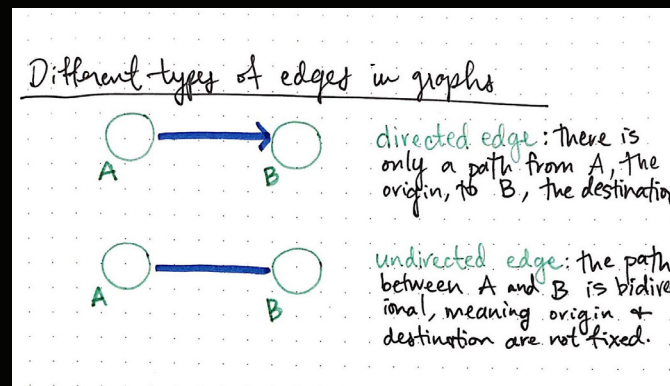 Different types of edges in graphs
A
B
directed edge: there is
only a path from A, the
origin, to B, the destination
A
B
undirected edge: the path
between A and B is bidire
ional, meaning origin +
destination are not fixed.